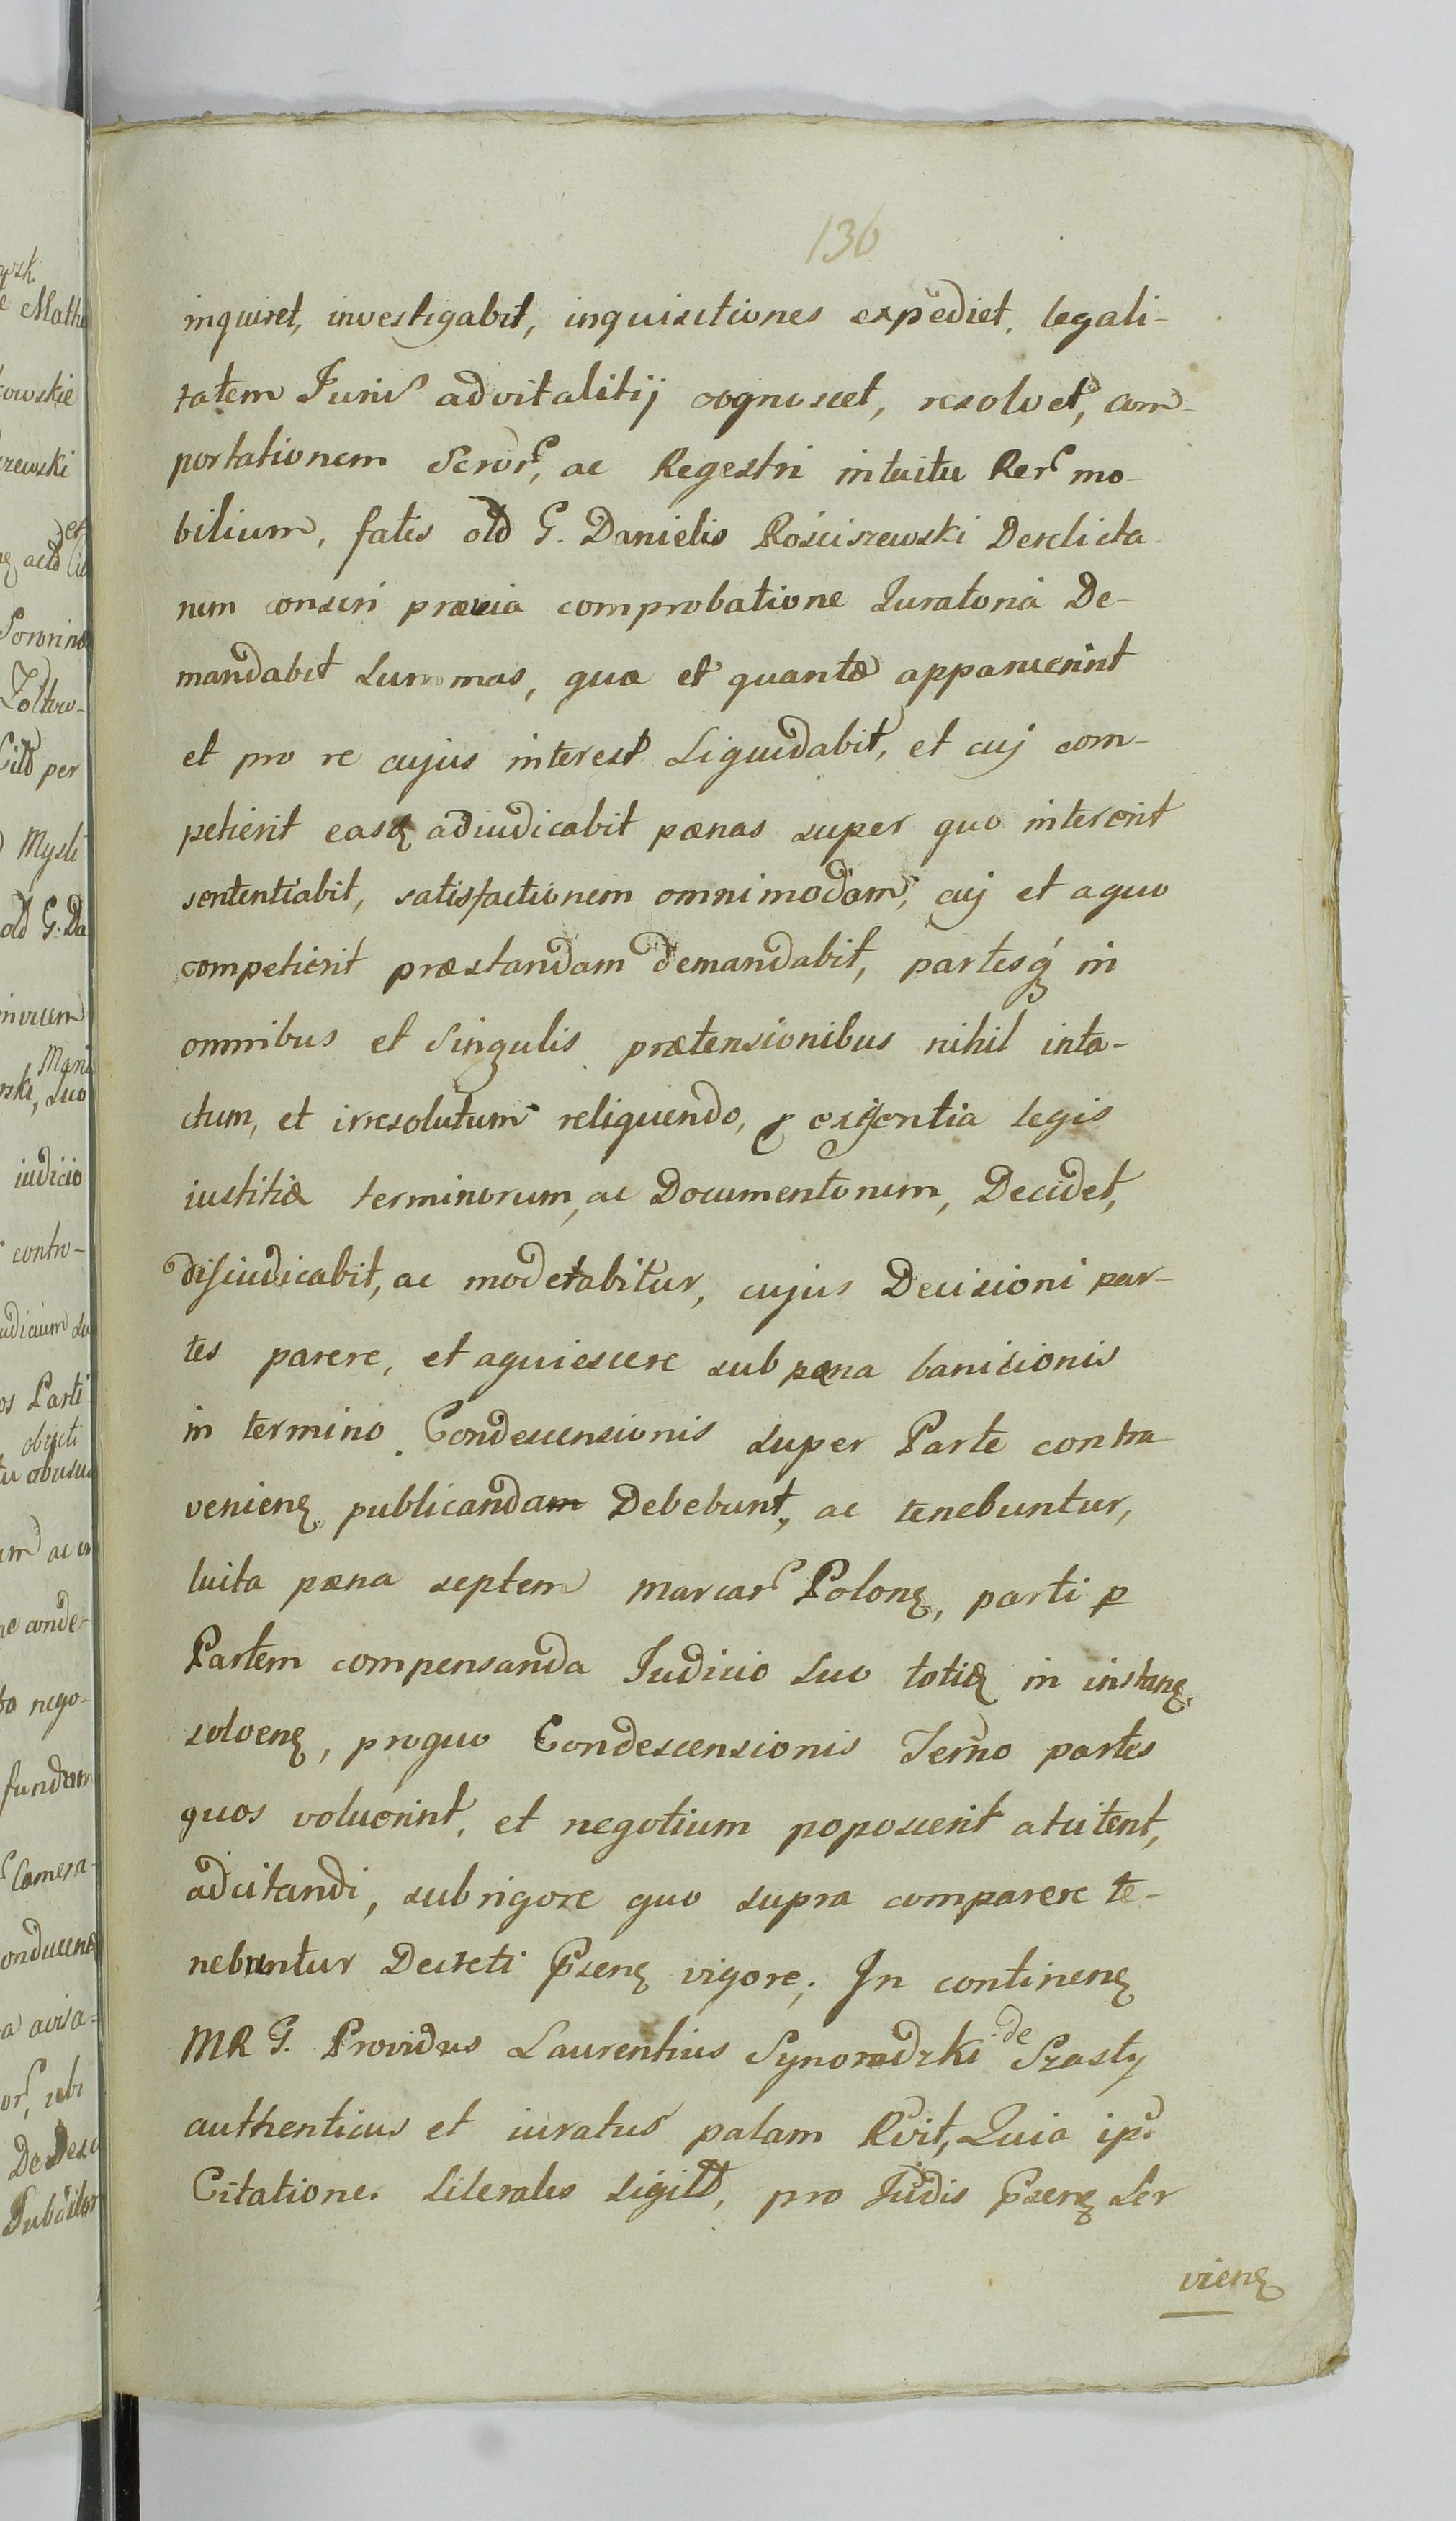 136
inquiret, investigabit, inquisitiones expediet, legali-
tatem Juris advitalitij cognoscet, resolvet, com-
portationem Scror, ac Regestri intuitu Rer mo-
bilium, fatis old G. Danielis Rościszewski Derelicta-
rum conscri prævia comprobatione Juratoria De-
mandabit Summas, quæ et quantæ apparuerint
et pro re cujus interest Liquidabit, et cuj com-
petierit easq adiudicabit pænas super quo intererit
sententiabit, satisfactionem omnimodam, cuj et aquo
competierit præstandam demandabit, partesq in
omnibus et Singulis prætensionibus nihil inta-
ctum, et irresolutum reliquendo, exigentia legis
iustitiæ terminorum, ac Documentorum, Decidet,
disiudicabit, ac moderabitur, cujus Decisioni par-
tes parere, et aquiescere sub pæna banitionis
in termino Condescensionis super Parte contra
venien publicandam Debebunt, ac tenebuntur,
luita pæna septem marcar Polon, parti p
Partem compensanda Judicio Suo totid in instan
solven, proquo Condescensionis Termo partes
quos voluerint, et negotium poposcerit atutent,
adcitandi, sub rigore quo supra comparere te-
nebuntur Decreti Psen vigore; In continen
MR G. Providus Laurentius Synoradzki de Szasty
authenticus et iuratus palam Rvit, Quia ip
Citationes Literales Sigilt, pro Judis Psen Ser
vien
ctowskie
iudicio
contro-
udicium
Camera-